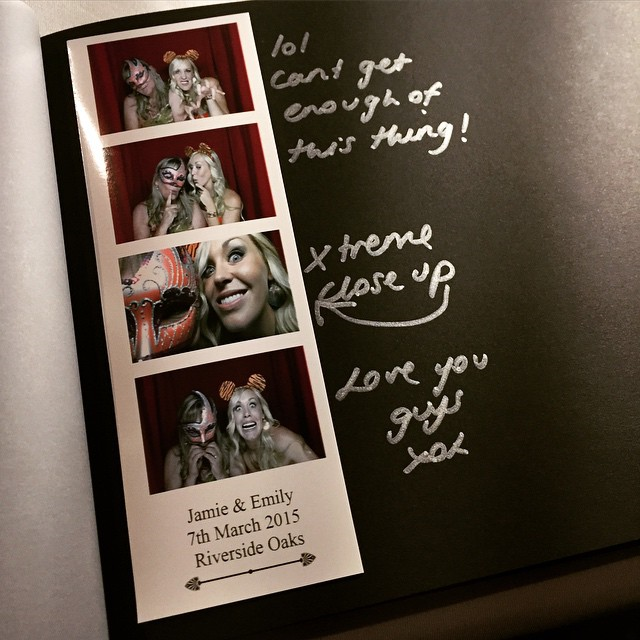 lol
Cant get
enough of
this thing!
Xtreme
close up
Love you
guys
xox
Jamie & Emily
7th March 2015
Riverside Oaks